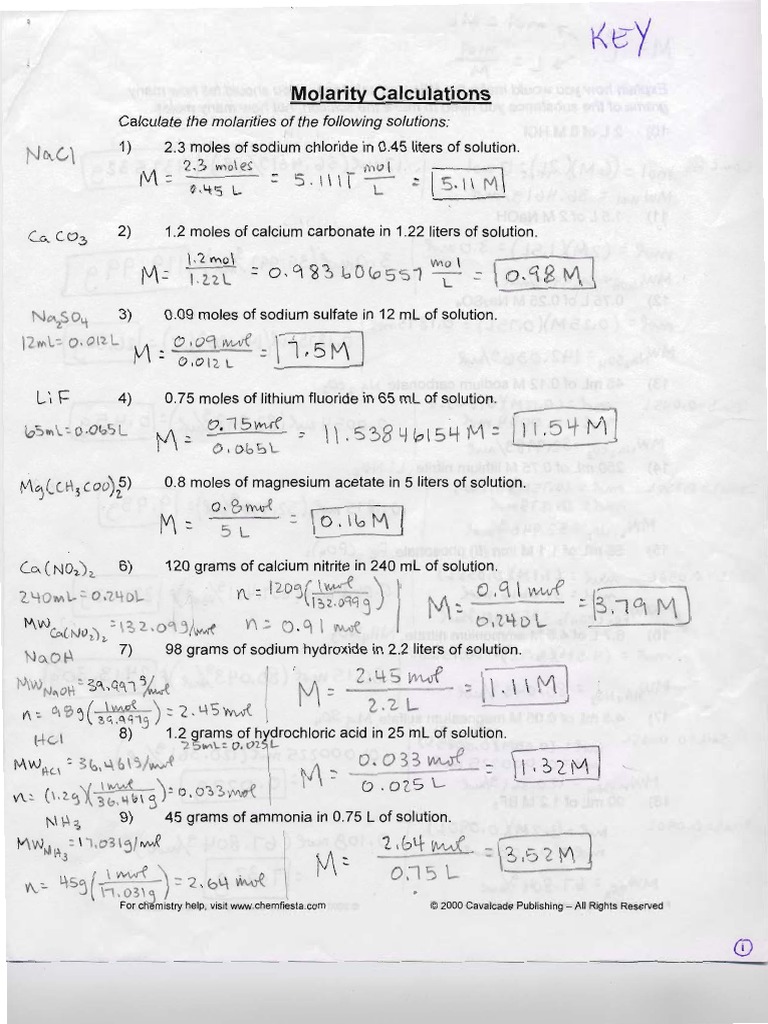 KEY
Molarity Calculations
Calculate the molarities of the following solutions:
NaCl
1) 2.3 moles of sodium chloride in 0.45 liters of solution.
M = 2.3 moles / 0.45 L = 5.1111 mol/L = 5.11 M
CaCO3
2) 1.2 moles of calcium carbonate in 1.22 liters of solution.
M = 1.2 mol / 1.22L = 0.983606557 mol/L = 0.98 M
Na2SO4
3) 0.09 moles of sodium sulfate in 12 mL of solution.
12mL = 0.012L
M = 0.09 mol / 0.012L = 7.5M
LiF
4) 0.75 moles of lithium fluoride in 65 mL of solution.
65mL = 0.065L
M = 0.75mol / 0.065L = 11.53846154M = 11.54 M
Mg(CH3COO)2
5) 0.8 moles of magnesium acetate in 5 liters of solution.
M = 0.8 mol / 5 L = 0.16 M
Ca(NO2)2
6) 120 grams of calcium nitrite in 240 mL of solution.
240mL = 0.240L
n = 120g (1mol / 132.099g)
M = 0.91 mol / 0.240L = 3.79 M
MW Ca(NO2)2 = 132.099/mol
n = 0.91 mol
NaOH
7) 98 grams of sodium hydroxide in 2.2 liters of solution.
MW NaOH = 39.997g/mol
M = 2.45 mol / 2.2L = 1.11M
n = 98g (1mol / 39.997g) = 2.45 mol
HCl
8) 1.2 grams of hydrochloric acid in 25 mL of solution.
25mL = 0.025L
MW HCl = 36.461g/mol
M = 0.033 mol / 0.025 L = 1.32M
n = (1.2g)(1mol / 36.461g) = 0.033 mol
NH3
9) 45 grams of ammonia in 0.75 L of solution.
MW NH3 = 17.031g/mol
M = 2.64 mol / 0.75 L = 3.52 M
n = 45g (1 mol / 17.031g) = 2.64 mol
For chemistry help, visit www.chemfiesta.com © 2000 Cavalcade Publishing – All Rights Reserved
1